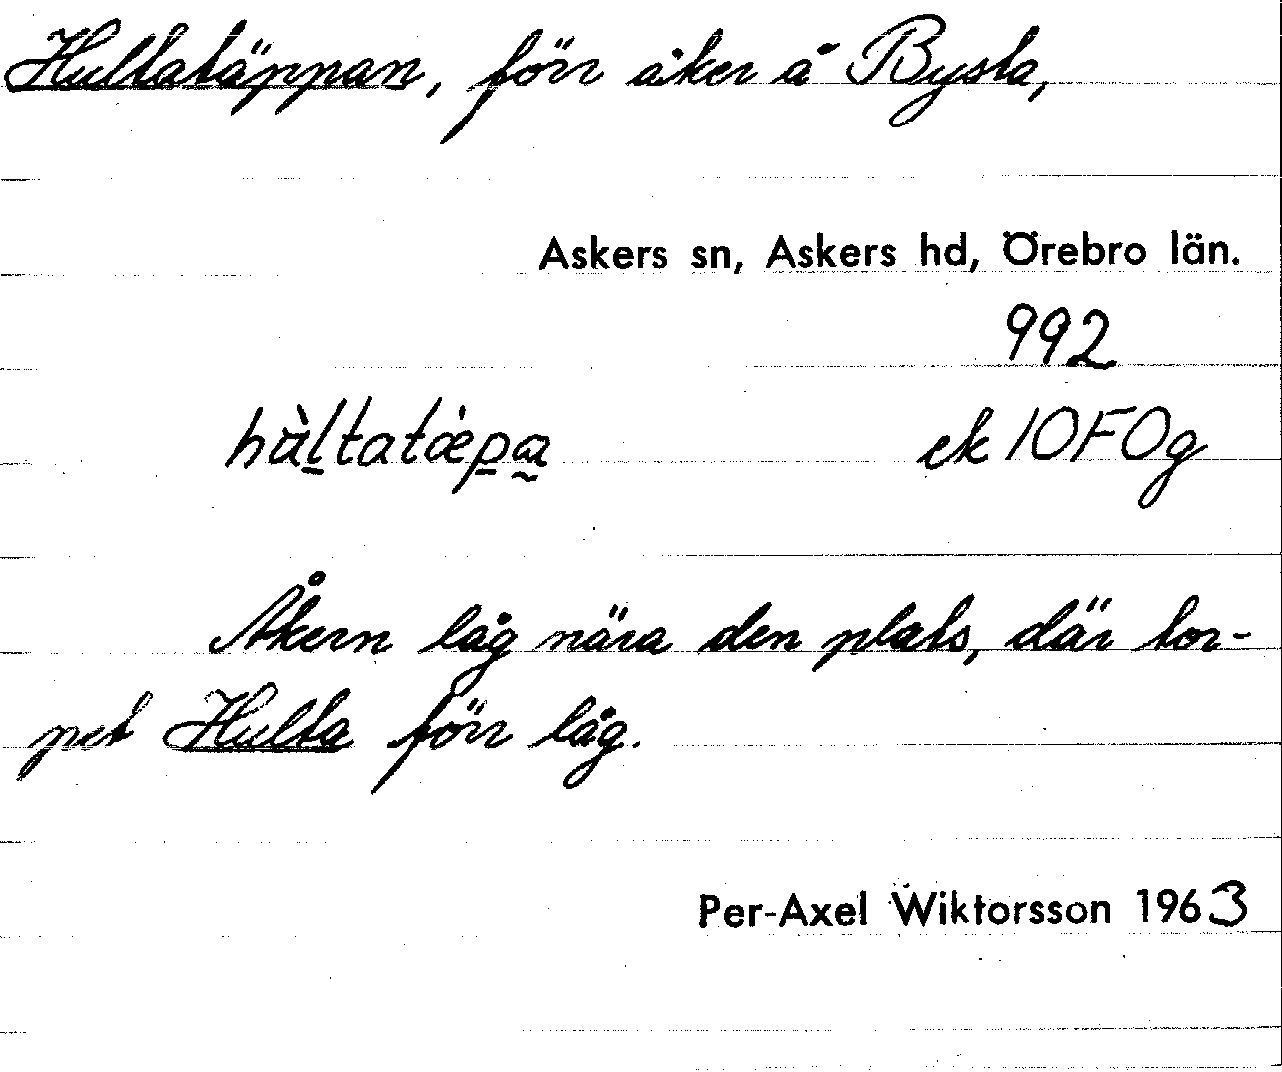 Hultatäppan, förr åker å Bysta,
Askers sn, Askers hd, Örebro län.
992
hùl̠tatæ̀p̠a̰ ek 10F0g
Åkern låg nära den plats, där tor-
pet Hulta förr låg.
Per-Axel Wiktorsson 1963